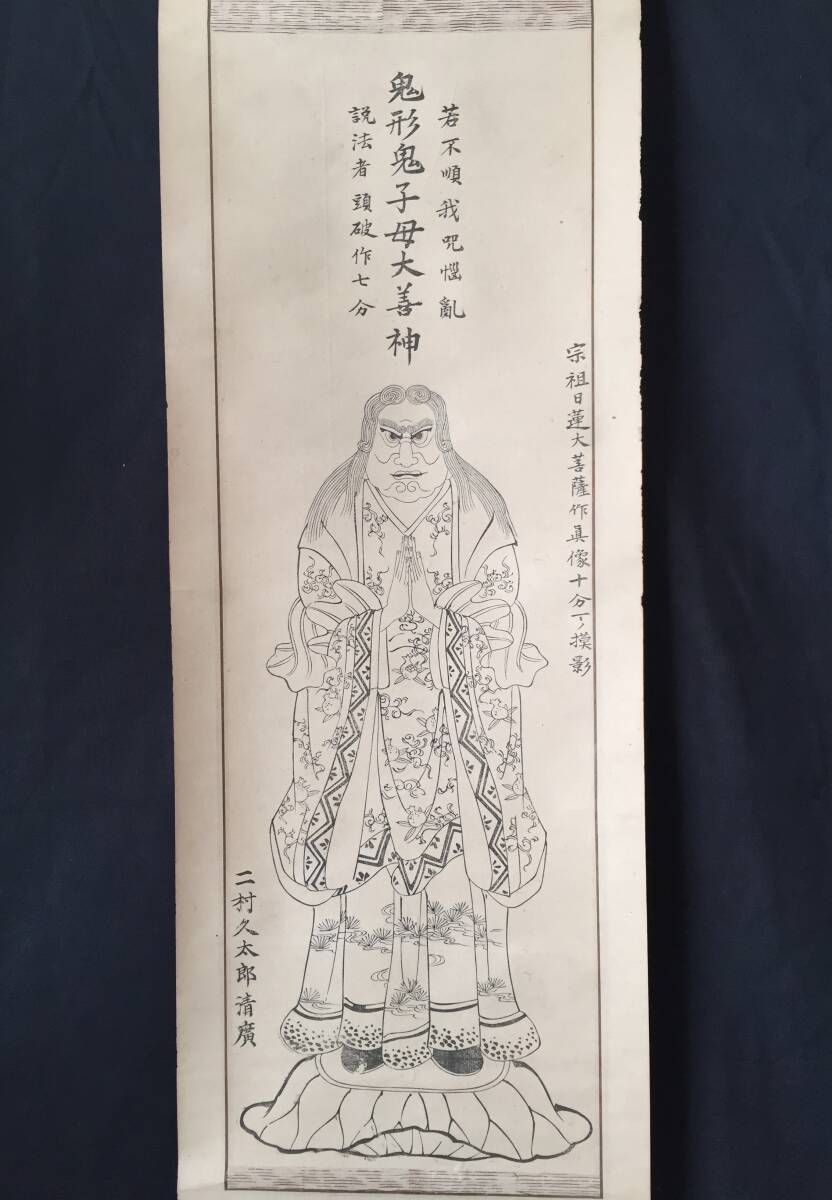 若不順我呪惱亂
鬼形鬼子母大善神
説法者頭破作七分
宗祖日蓮大菩薩作眞像十分一ノ摸影
二村久太郎清廣